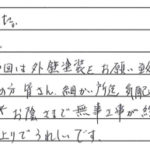 た。
回は外壁塗装をお願い致
の方 皆さん、細かい所迄、気配
お陰さまで無事工事が終
上りでうれしいです。